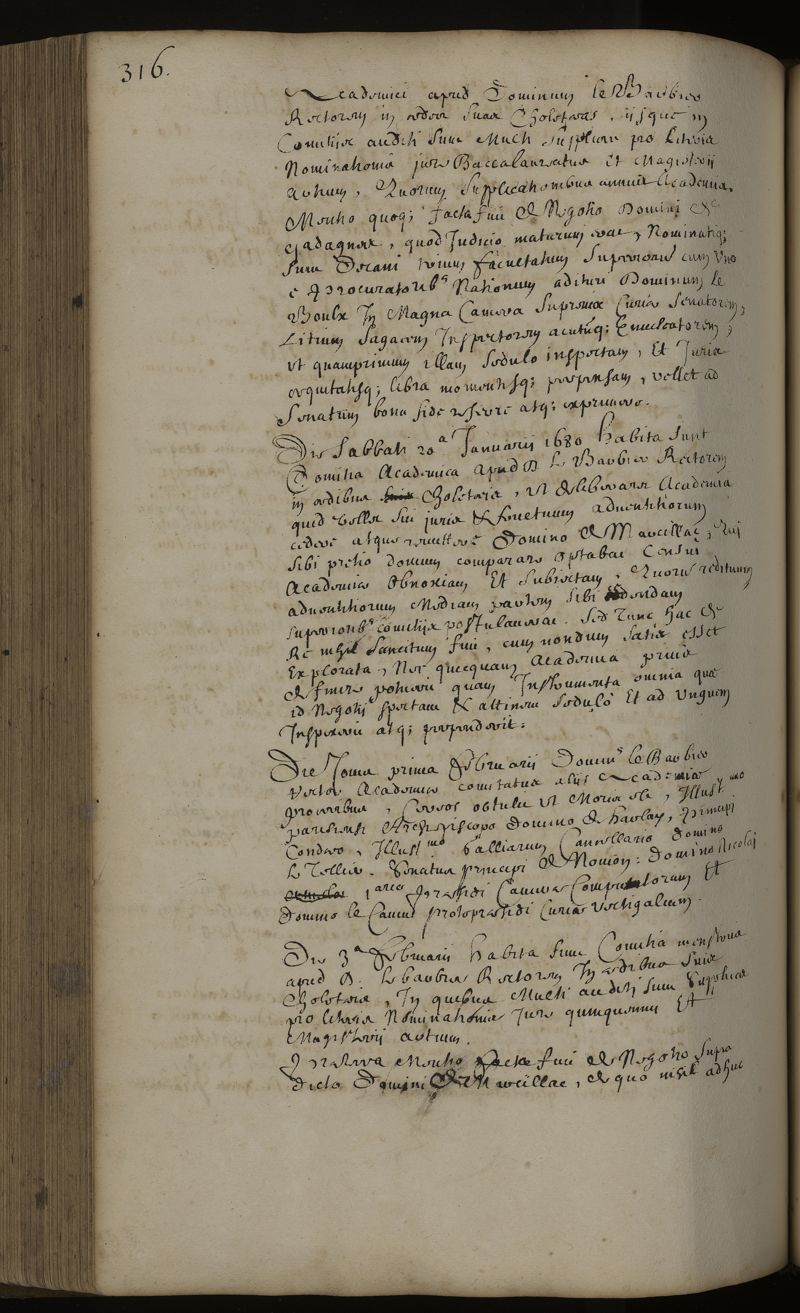 316.
Academici apud Dominum le Barbier
Rectorem in aedes suas Choletaeas, iisque in
Comitiis auditi sunt Multi supplices pro Literis
Nominationis jure Baccalaureatus et Magisterii
Artium, Quorum supplicationibus annuit Academia.
Mentio quoq; facta fuit de Negotio Domini de
quod Judicio maturum erat, Nominatiq;
sunt Decani trium facultatum Superiorum cum Uno
e Procuratorib9 Nationum adituri Dominum le
Boulx In Magna Camera Supremae Curiae Senatorem,
Litium Sagacem Inspectorem acutūq; Enucleatorem;
ut quamprimum illam sedulo inspectam, Et Juris
aequitatisq; libra momentisq; perpensam, vellet ad
Senatum bona fide referre atq; exprimere.
Die Sabbati 20a Januarii 1680 habita sunt
Comitia Academica apud D. le Barbier Rectorem
in aedibus Choletaeis, ut deliberaret Academia
quid vellet sui juris
cedere atque remittere Domino de Marcillac, qui
sibi pretio domum comparare optabat Censui
Academico Obnoxiam Et Subjectam, Quorū redituum
adventitiorum Mediam partem sibi dedendam
superiorib9 comitiis postulaverat. Sed Tunc hac de
Re nihil Sancitum fuit, cum nondum satis esset
Explorata, Nec quicquam Academia prius
definire potuerit quam Instrumenta omnia quae
id Negotii spectant & attinent sedulò Et ad Unguem
Inspexerit atq; perpenderit.
Die Jovis prima Februarii Domin9 le Barbier
rector Academiae comitatus aliis Academiae
proceribus, Cereos obtulit ut Moris est, Illustmo
parisiensi Archiepiscopo Domino de harlay, principi
Condaeo, Illustmo Galliarum Cancellario domino
le Tellier. Senatus principi de Novion: Domino Nicolaj
praesidi Camerae Computorum Et
Domino le Camus protopraesidi Curiae vectigalium.
Die 3a Februarii habita sunt Comitia menstrua
apud D. le barbier Rectorem In aedibus suis
Choletaeis, In quibus Multi auditi sunt supplices
pro literis Nominationis Jure quinquennii Et
Magisterii artium.
Mentio facta fuit de Negotio supra
dicto Domini de Marcillac, de quo nihil adhuc